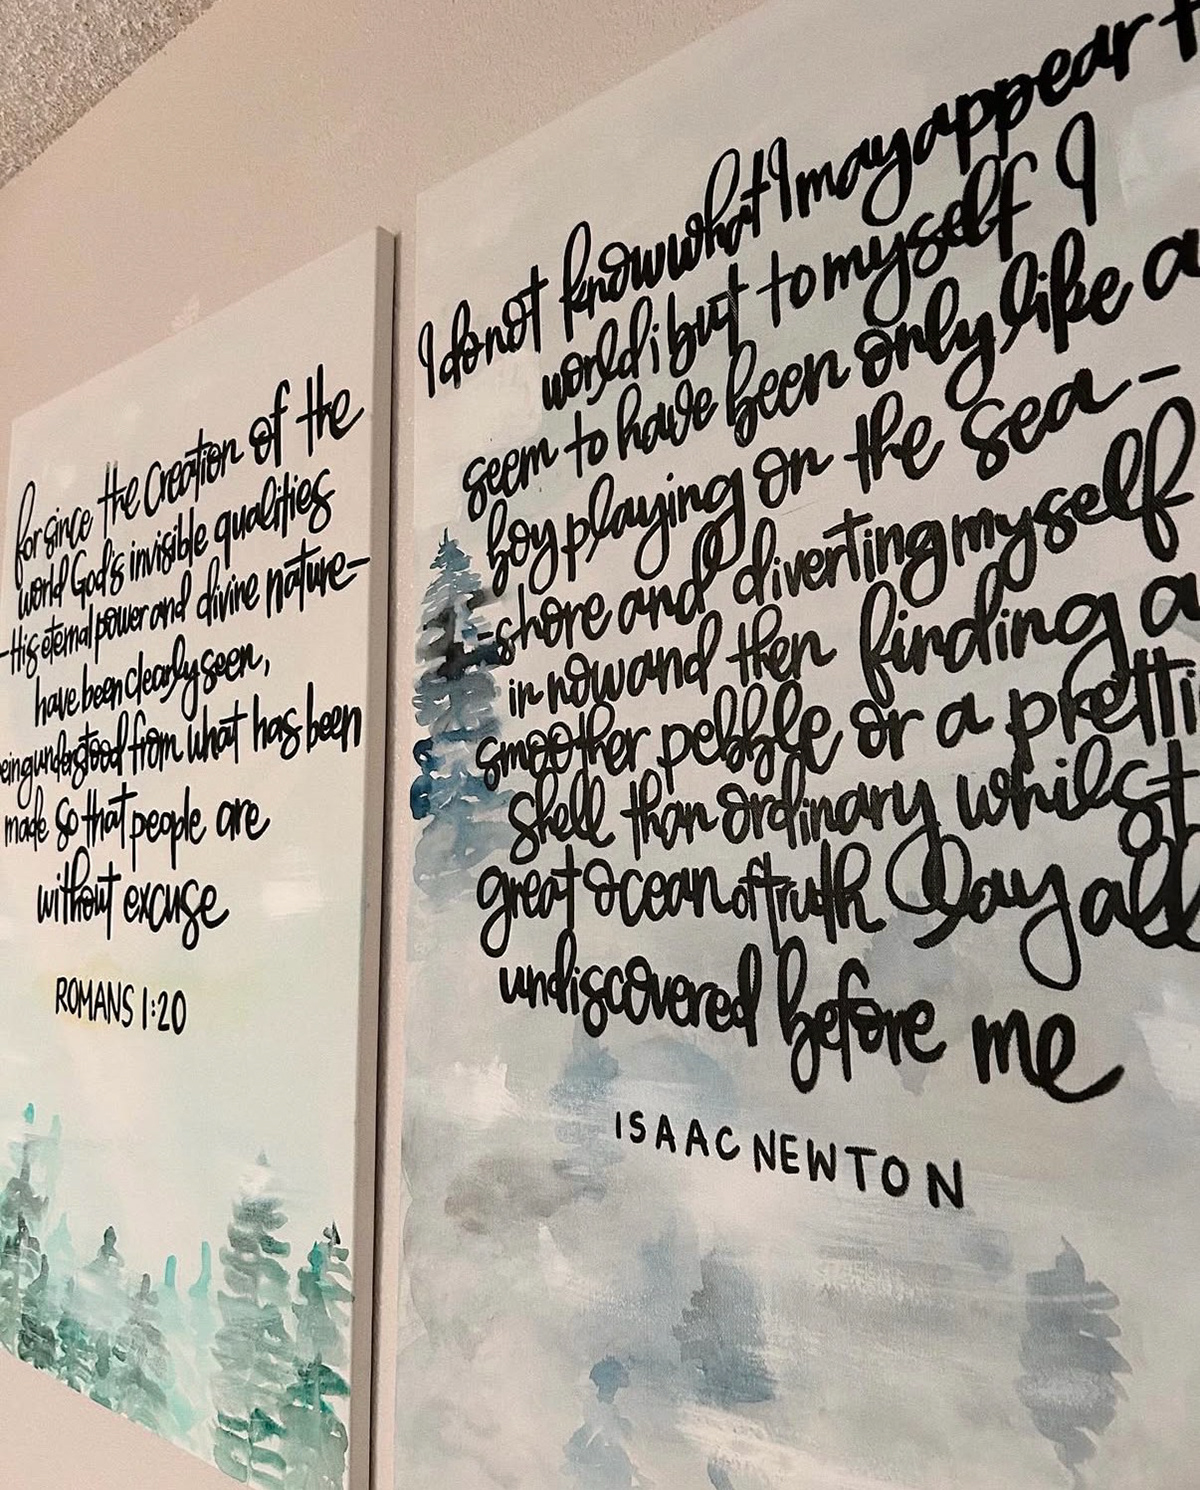 for since the creation of the
world God's invisible qualities
-His eternal power and divine nature-
have been clearly seen,
being understood from what has been
made so that people are
without excuse
ROMANS 1:20
I do not know what I may appear t
world; but to myself I
seem to have been only like a
boy playing on the sea-
-shore and diverting myself
in now and then finding a
smoother pebble or a pretti
shell than ordinary whilst
great ocean of truth lay all
undiscovered before me
ISAAC NEWTON